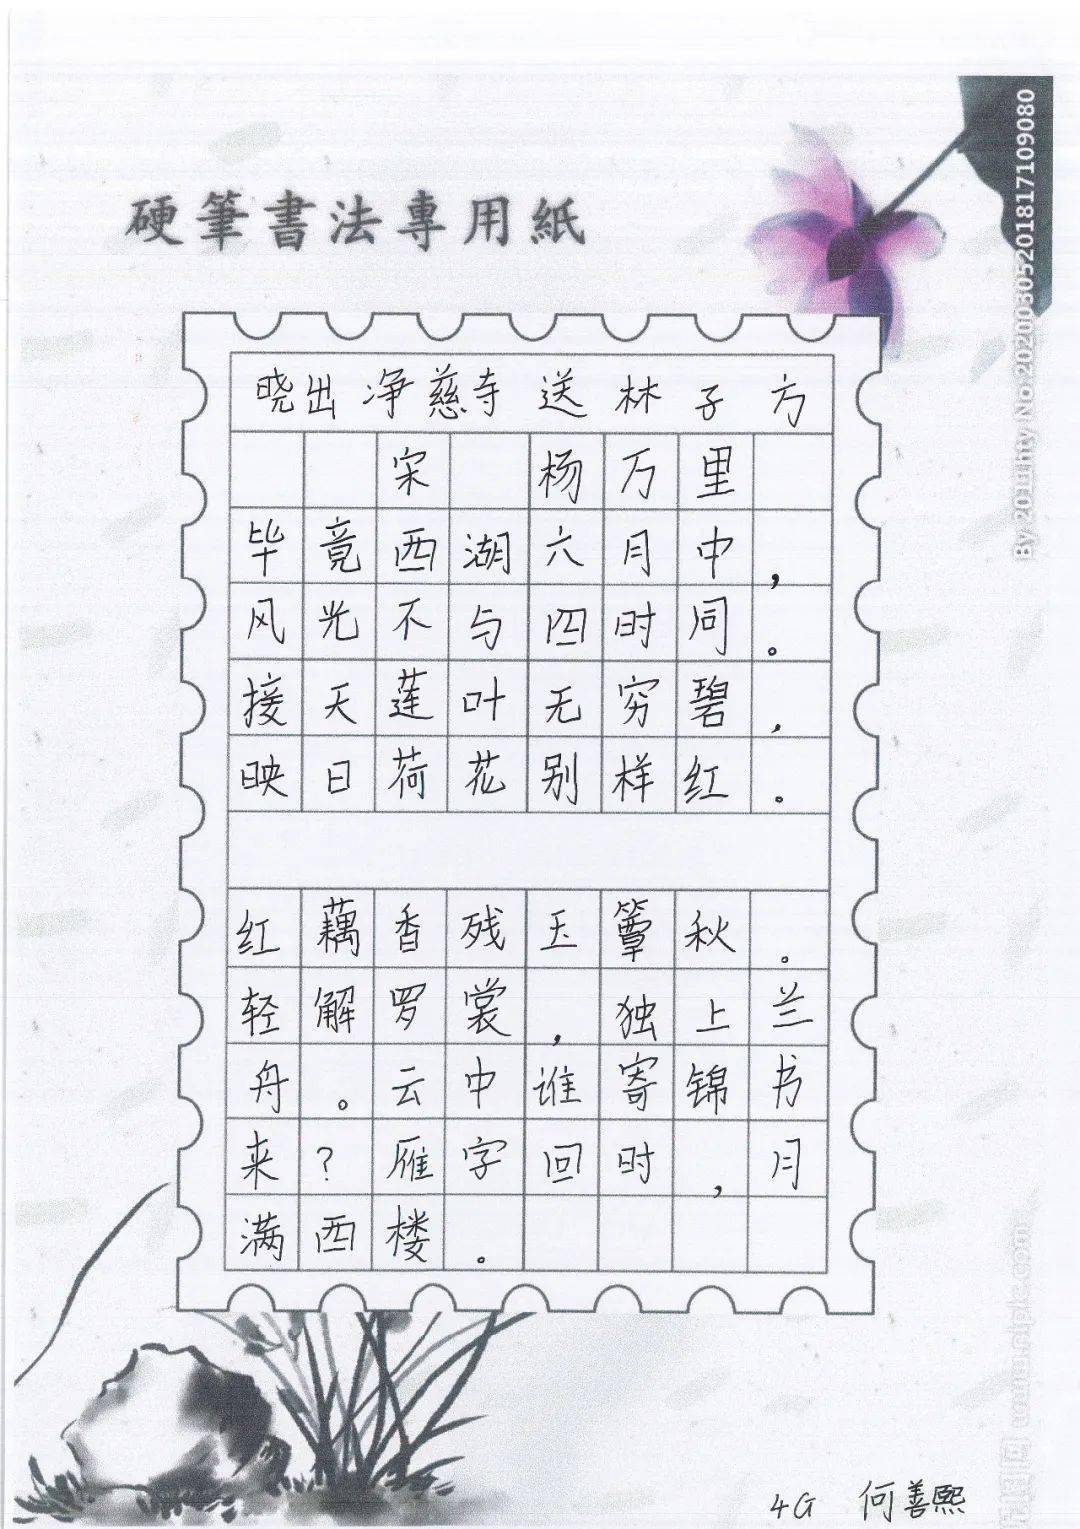 硬筆書法專用紙
By 2011hty No.20200305201817109080
晓出净慈寺送林子方
宋 杨万里
毕竟西湖六月中，
风光不与四时同。
接天莲叶无穷碧，
映日荷花别样红。
红藕香残玉簟秋。
轻解罗裳，独上兰
舟。云中谁寄锦书
来？雁字回时，月
满西楼。
4G 何善熙